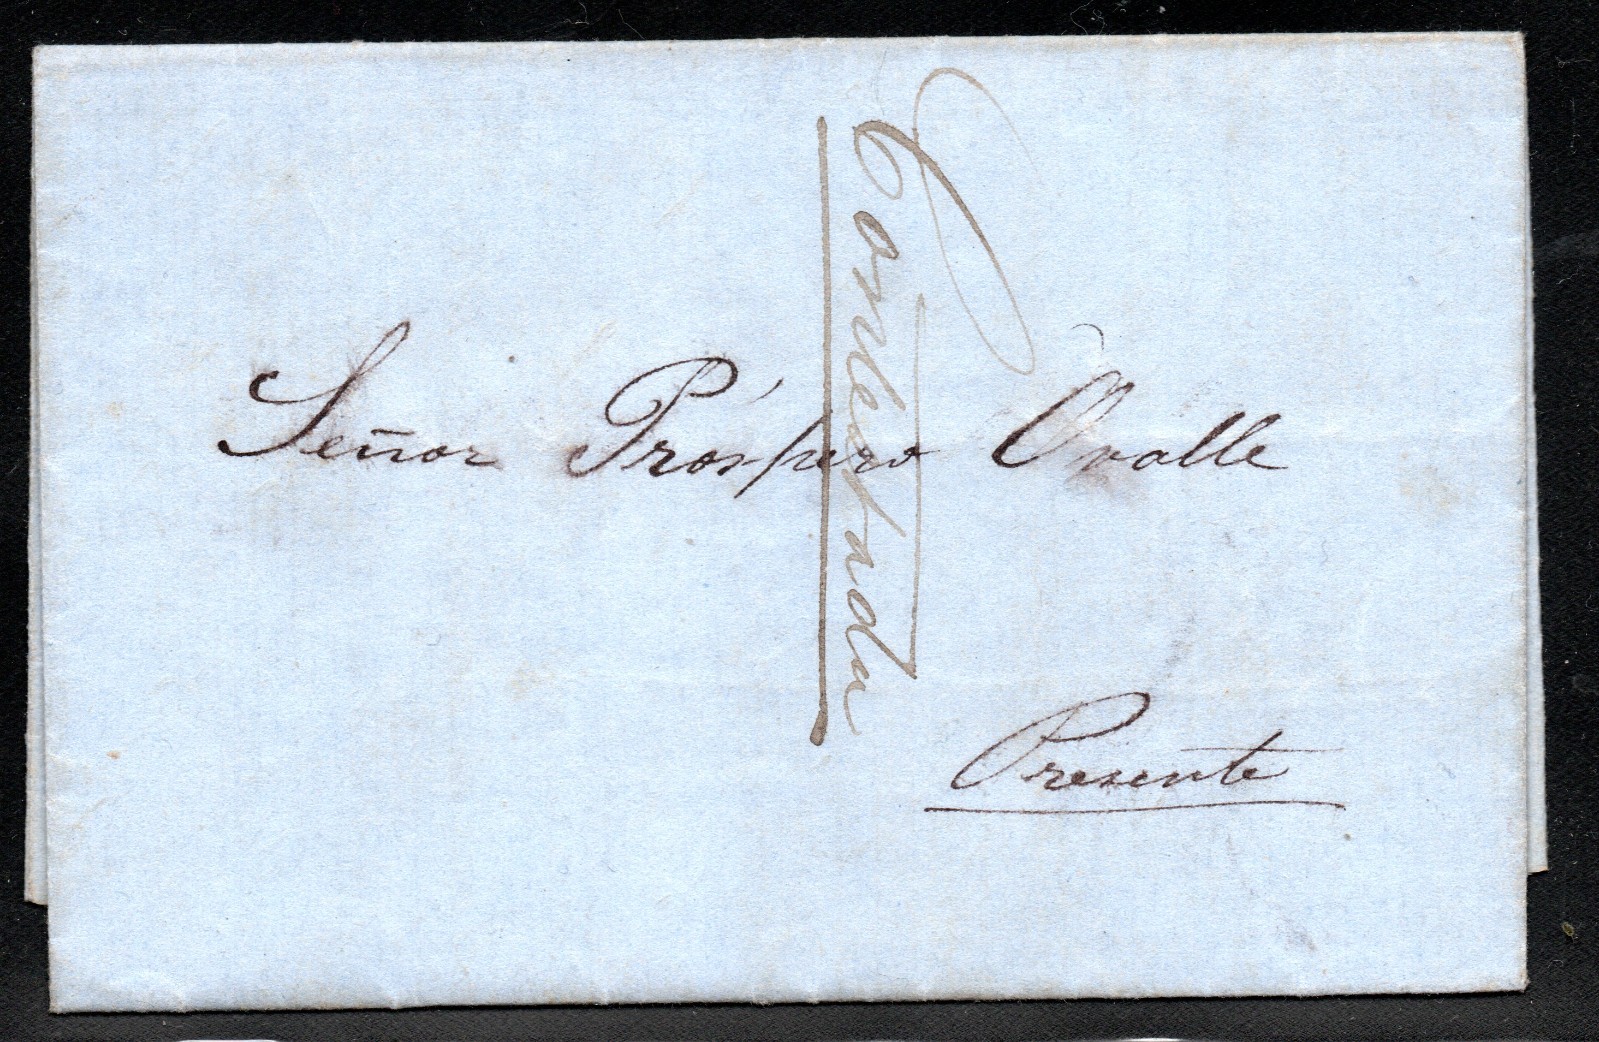 Señor Próspero Ovalle
Presente
Contestada